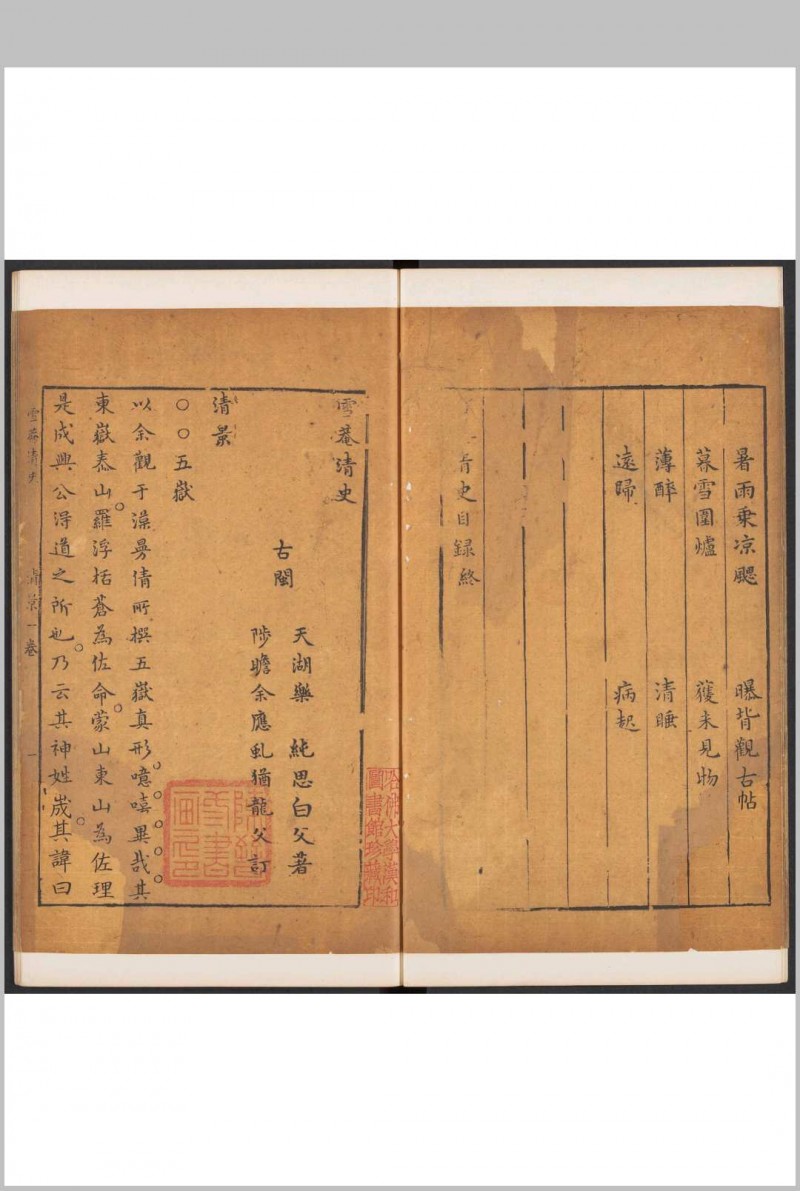 暑雨乗凉颸 曝背觀古帖
暮雪圍爐 獲未見物
薄醉 清睡
遠歸 病起
清史目録終
雪菴清史
天湖樂 純思白父著
古閩
陟瞻余應虬猶龍父訂
清景
○○五嶽
以余觀于澡曼倩所撰五嶽真形噫嘻異哉其
東嶽泰山羅浮括蒼為佐命蒙山東山為佐理
是成興公得道之所也乃云其神姓崴其諱曰
雪菴清史 清景一卷 一
哈佛大學漢和
圖書館珍藏印